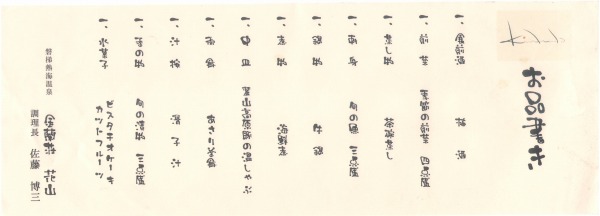 お品書き
一、食前酒 梅酒
一、前菜 季節の前菜 四点盛
一、蒸し物 茶碗蒸し
一、刺身 旬の 三点盛
一、鍋物 牛鍋
一、煮物 海鮮煮
一、中皿 高原豚の温しゃぶ
一、 あさり
一、汁椀 子汁
一、香の物 旬の漬物 三点盛
一、氷菓子 ピスタチオケーキ
カットフルーツ
磐梯熱海温泉
金蘭荘 花山
調理長 佐藤 博三